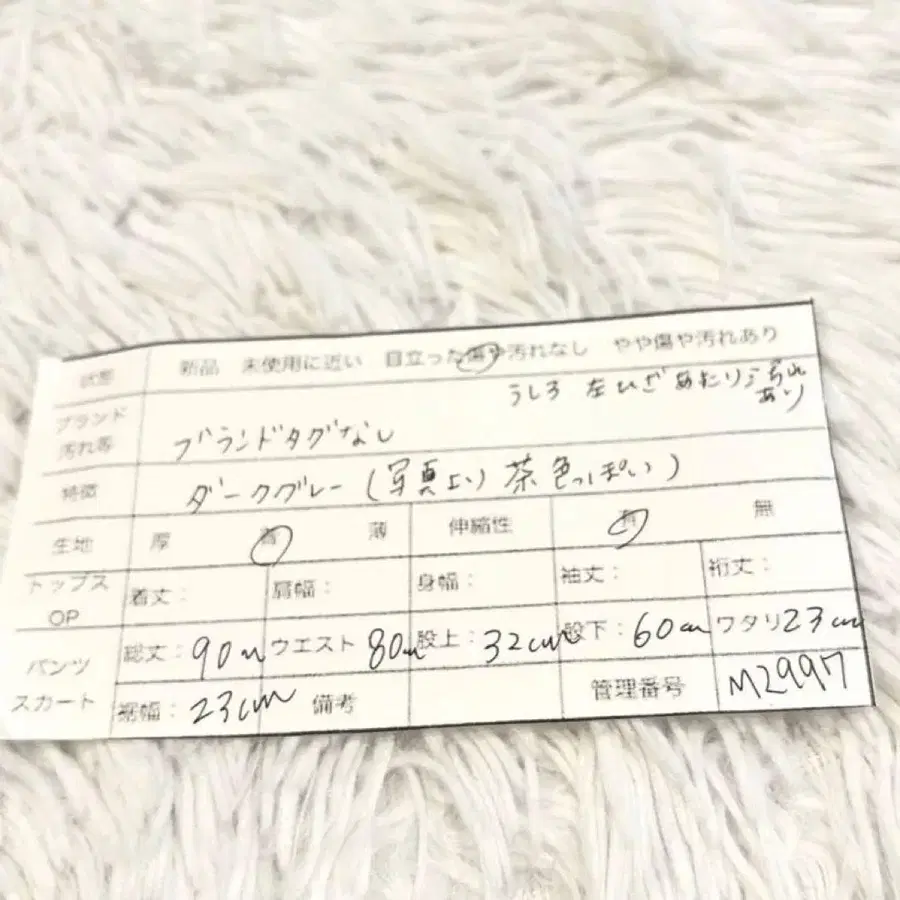 状態 新品 未使用に近い 目立った傷や汚れなし やや傷や汚れあり
うしろ 左ひざあたり
あり
ブランド
汚れ等 ブランドタグなし
特徴 ダークグレー(写真より茶色っぽい)
生地 厚 普 薄 伸縮性 有 無
トップス
OP 着丈: 肩幅: 身幅: 袖丈: 裄丈:
パンツ
スカート 総丈:90cm ウエスト80cm 股上:32cm 股下:60cm ワタリ23cm
裾幅:23cm 備考 管理番号 M2997